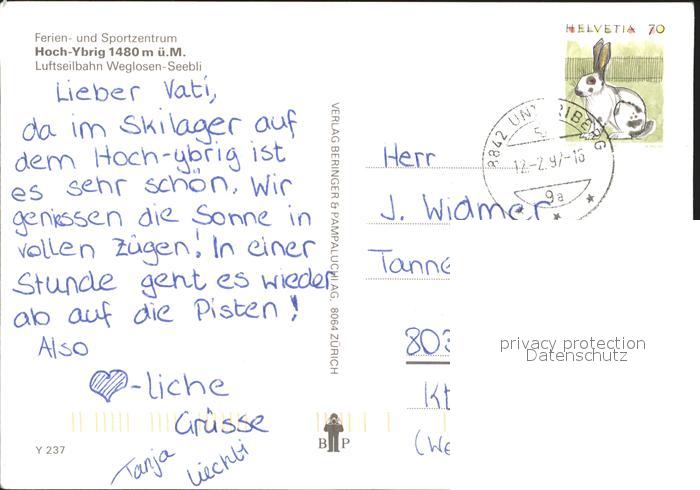 Ferien- und Sportzentrum
Hoch-Ybrig 1480 m ü.M.
Luftseilbahn Weglosen-Seebli
Lieber Vati,
da im Skilager auf
dem Hoch-ybrig ist
es sehr schön. Wir
geniessen die Sonne in
vollen Zügen! In einer
Stunde geht es wieder
ab auf die Pisten!
Also
-liche
Grüsse
Tanja Liechti
Y 237
VERLAG BERINGER & PAMPALUCHI AG, 8064 ZÜRICH
B P
HELVETIA 70
8842 UNTERIBERG
12.-2.97-16
9a
Herr
J. Widmer
Tanne
803
Kt
(We
privacy protection
Datenschutz